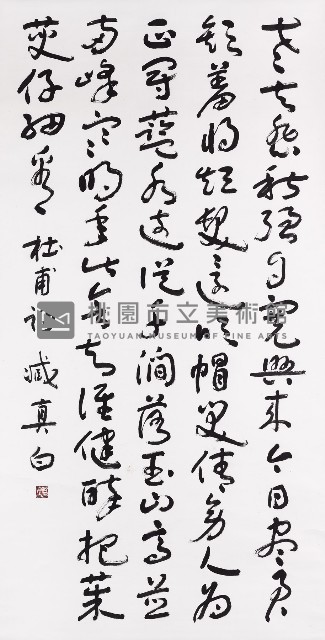 老去悲秋強自寬興來今日盡君
歡羞將短髮還吹帽笑倩旁人為
正冠藍水遠從千澗落玉山高並
兩峰寒明年此會知誰健醉把茱
萸仔細看 杜甫詩 臧真白
桃園市立美術館
TAOYUAN MUSEUM OF FINE ARTS